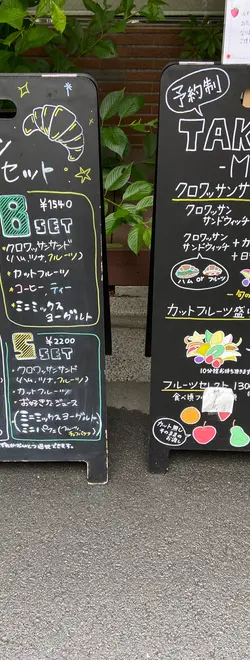 セット
B ¥1540
SET
・クロワッサンサンド
(ハム、ツナ、フルーツ)
・カットフルーツ
・コーヒー、ティー
・ミニミックス
ヨーグルト
S ¥2200
SET
・クロワッサンサンド
(ハム、ツナ、フルーツ)
・カットフルーツ
・お好きなジュース
(ミニミックスヨーグルト
予約制
TAK
-M
クロワッサンサ
クロワッサン
サンドウィッチ
クロワッサン
サンドウィッチ
+カ
+日
ハム or フルーツ
カットフルーツ盛り
10分程お待ち頂きます
フルーツセレクト 130
食べ頃フ
カット無し